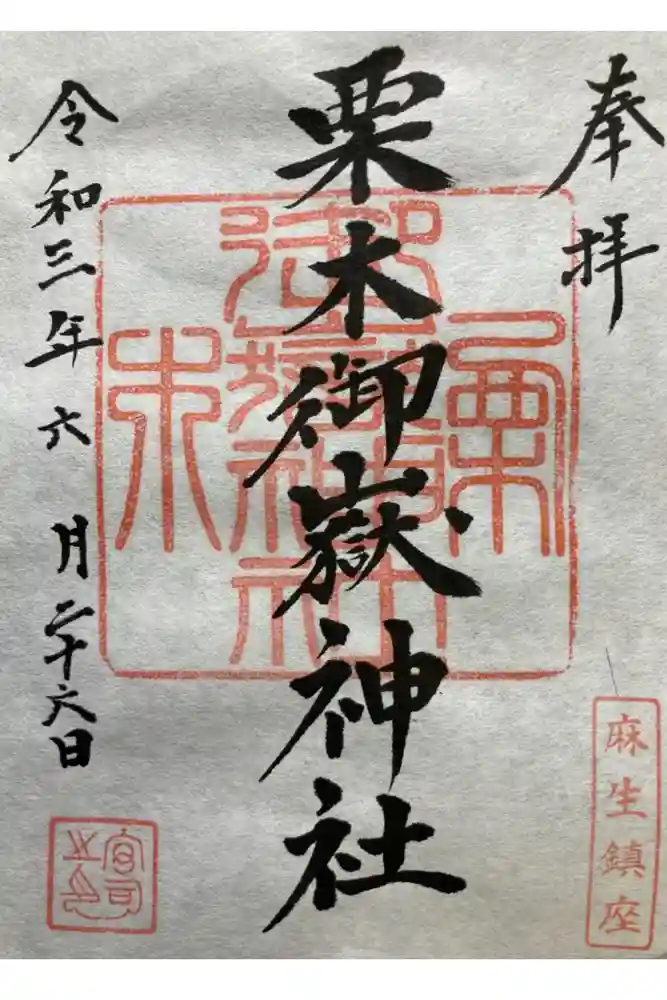 奉拝
栗木御嶽神社
令和三年六月二十六日
栗木御嶽神社
麻生鎮座
宮司之印